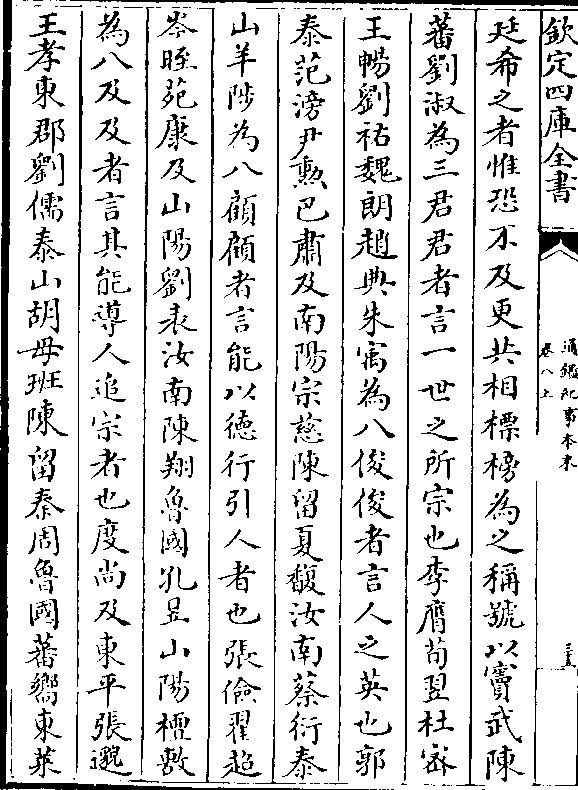 欽定四庫全書
通鑑紀事本末
卷八上
廷希之者惟恐不及更共相標榜為之稱號以竇武陳
蕃劉淑為三君君者言一世之所宗也李膺荀翌杜宻
王暢劉祐魏朗趙典朱㝢為八俊俊者言人之英也郭
泰范滂尹勲巴肅及南陽宗慈陳留夏馥汝南蔡衍泰
山羊陟為八顧顧者言能以徳行引人者也張儉翟超
岑晊苑康及山陽劉表汝南陳翔魯國孔昱山陽檀敷
為八及及者言其能導人追宗者也度尚及東平張邈
王孝東郡劉儒泰山胡母班陳留秦周魯國蕃嚮東萊